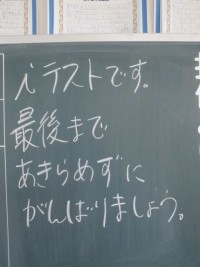 iテストです。
最後まで
あきらめずに
がんばりましょう。